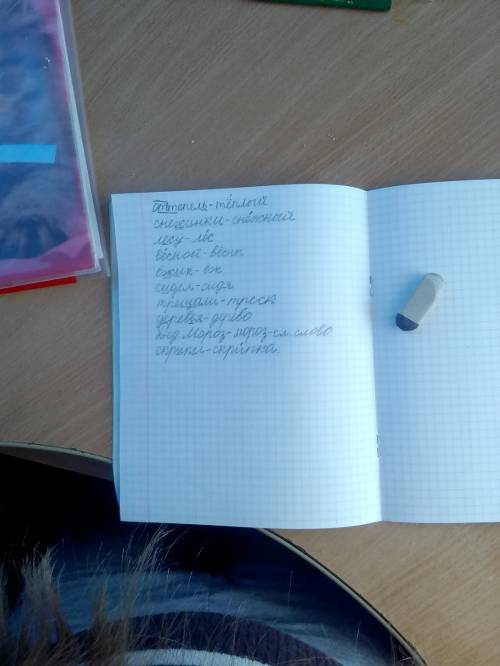 оттепель-тёплый
снежинки-снежный
лесу-лес
весной-вёсны
ёжик-ёж
сидел-сидя
трещали-треск
деревья-дерево
Дед Мороз-мороз-сл. слово
скрипел-скрипка.